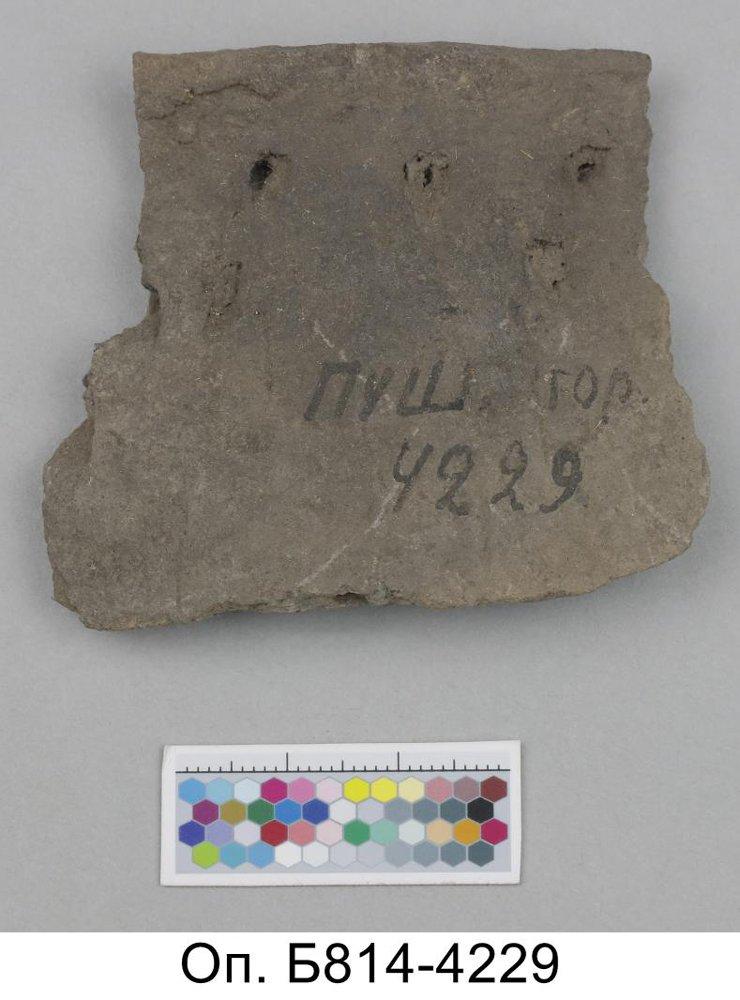 ПУШ. гор.
4229
Оп. Б814-4229